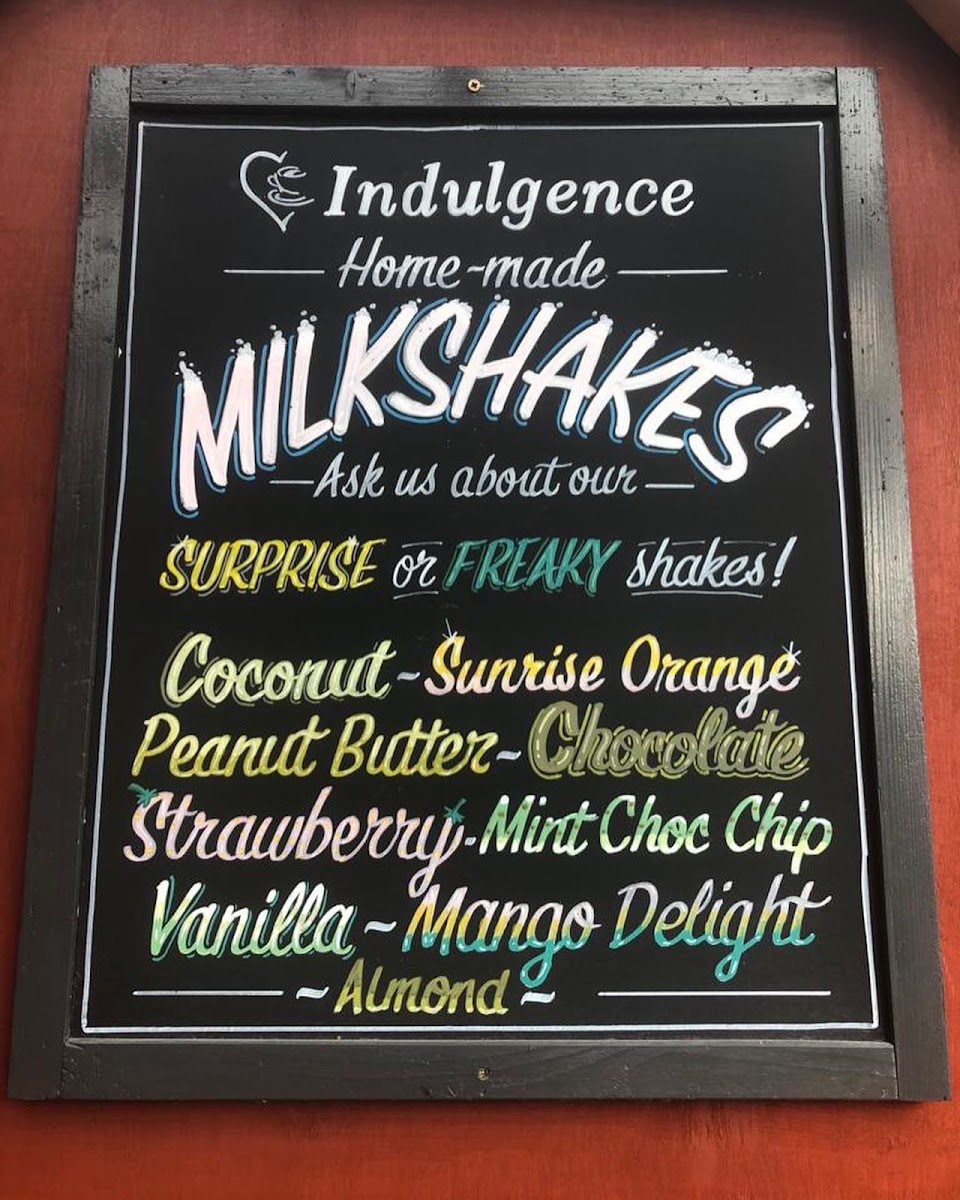 Indulgence
Home-made
MILKSHAKES
Ask us about our
SURPRISE or FREAKY shakes!
Coconut ~ Sunrise Orange
Peanut Butter ~ Chocolate
Strawberry - Mint Choc Chip
Vanilla ~ Mango Delight
~ Almond ~